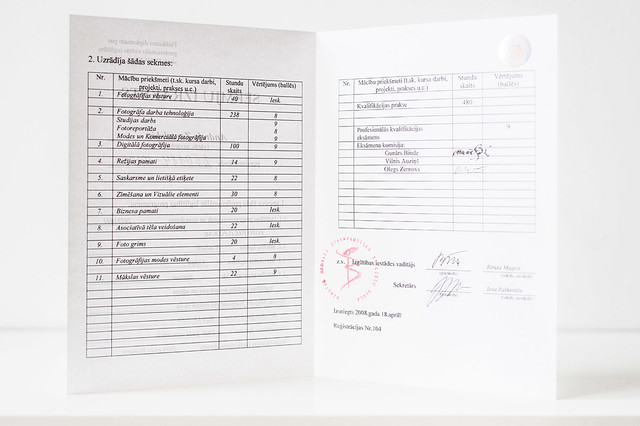 2. Uzrādīja šādas sekmes:
Nr. Mācību priekšmeti (t.sk. kursa darbi, projekti, prakses u.c.) Stundu skaits Vērtējums (ballēs)
1. Fotogrāfijas vēsture 40 Iesk.
2. Fotogrāfa darba tehnoloģija 238 8
Studijas darbs 9
Fotoreportāža 8
Modes un Komerciālā fotogrāfija 9
3. Digitālā fotogrāfija 100 9
4. Režijas pamati 14 9
5. Saskarsme un lietišķā etiķete 22 8
6. Zīmēšana un Vizuālie elementi 30 8
7. Biznesa pamati 20 Iesk.
8. Asociatīvā tēla veidošana 22 Iesk.
9. Foto grims 20 Iesk.
10. Fotogrāfijas modes vēsture 4 8
11. Mākslas vēsture 22 9
Nr. Mācību priekšmeti (t.sk. kursa darbi, projekti, prakses u.c.) Stundu skaits Vērtējums (ballēs)
Kvalifikācijas prakse 480
Profesionālās kvalifikācijas eksāmens 9
Eksāmena komisija:
Gunārs Binde
Vilnis Auziņš
Oļegs Zernovs
z.v. Izglītības iestādes vadītājs
Sekretārs
Izsniegts 2008.gada 18.aprīlī
Reģistrācijas Nr.104